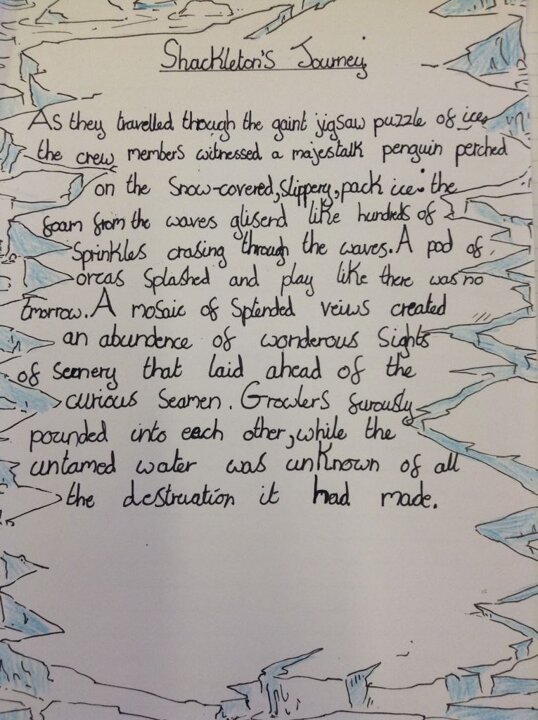 Shackleton's Journey
As they travelled through the gaint jigsaw puzzle of ice,
the crew members witnessed a majestalk penguin perched
on the snow-covered, slippery, pack ice: the
foam from the waves glisend like hundreds of
Sprinkles crasing through the waves. A pod of
orcas Splashed and play like there was no
tmorrow. A mosaic of Splended veiws created
an abundence of wonderous Sights
of Scenery that laid ahead of the
curious Seamen. Growlers furously
pounded into each other, while the
untamed water was unknown of all
the destruation it had made.